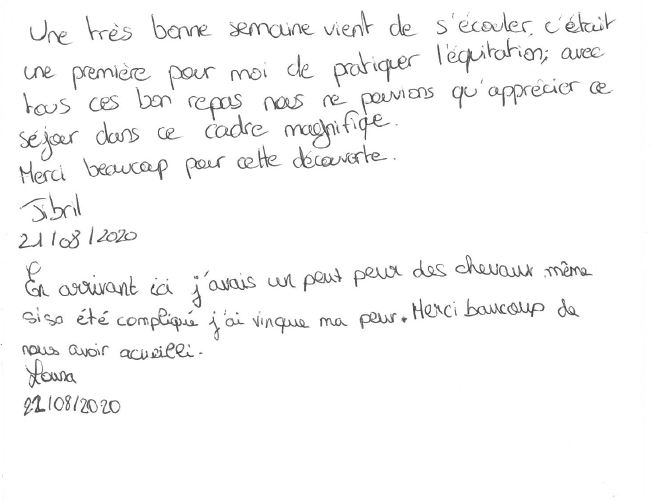 Une très bonne semaine vient de s'écouler, c'était
une première pour moi de pratiquer l'équitation; avec
tous ces bon repas nous ne pouvions qu'apprécier ce
séjour dans ce cadre magnifique.
Merci beaucoup pour cette découverte.
Jibril
21/08/2020
En arrivant ici j'avais un peut peur des chevaux même
siso été compliqué j'ai vinque ma peur. Merci baucoup de
nous avoir acueilli.
21/08/2020